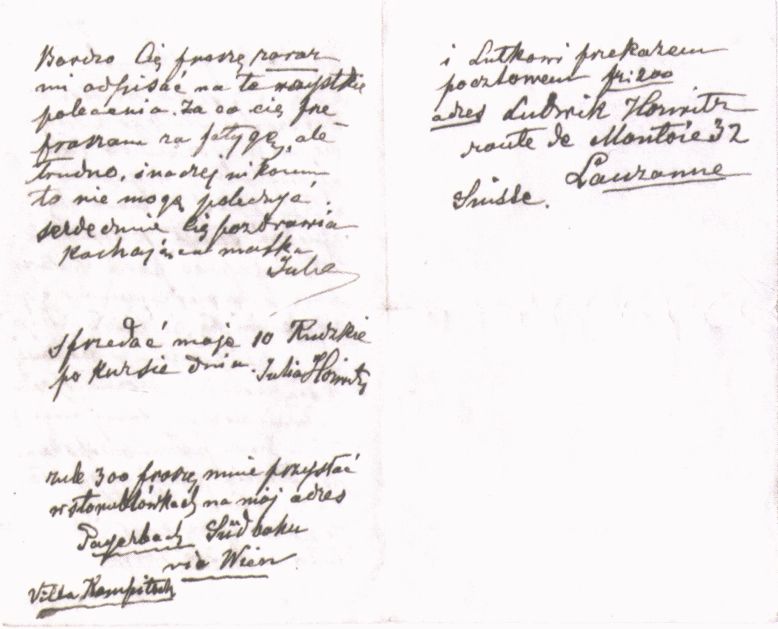 Bardzo Cię proszę zaraz
mi odpisać na te wszystkie
polecenia. Za co cię prze
praszam za fatygę, ale
trudno, inaczej nikomu
to nie mogę polecać.
serdecznie Cię pozdrawia
kochająca matka
Julia
sprzedać moje 10 Rudzkie
po kursie dnia. Julia Horwitz
rule 300 proszę mnie przysłać
w storublówkach na mój adres
Payerbach Südbahn
via Wien
Villa Kampitsch
i Lutkowi przekazem
pocztowem fr: 200
adres Ludwik Horwitz
route de Montoie 32
Lauzanne
Suisse.